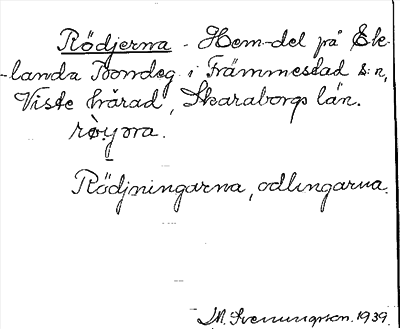 Rödjerna - Hem-del på Ek-
-landa Bondeg. i Främmestad s:n,
Viste härad, Skaraborgs län.
Rödjningarna, odlingarna.
M. Svenungson. 1939.